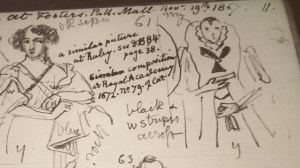 at Fosters. Pall. Mall. Nov. 19th 186
11.
61
a similar picture
at Raley. see 884.
page 38.
Similar composition
at Royal Academy
1872. no. 79. of Cat.
black &
w stripes
across
blue
y
y
63